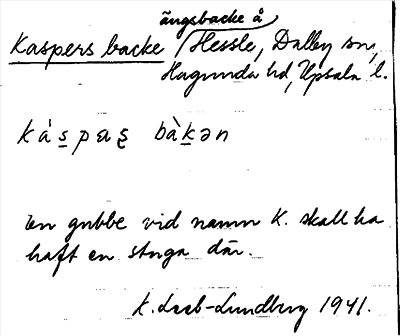 ängsbacke å
Kaspers backe / Hessle, Dalby sn,
Hagunda hd, Upsala l.
ká̀s̲pɑʂ bàk̲ən
En gubbe vid namn K. skall ha
haft en stuga där.
K. Leeb-Lundberg 1941.